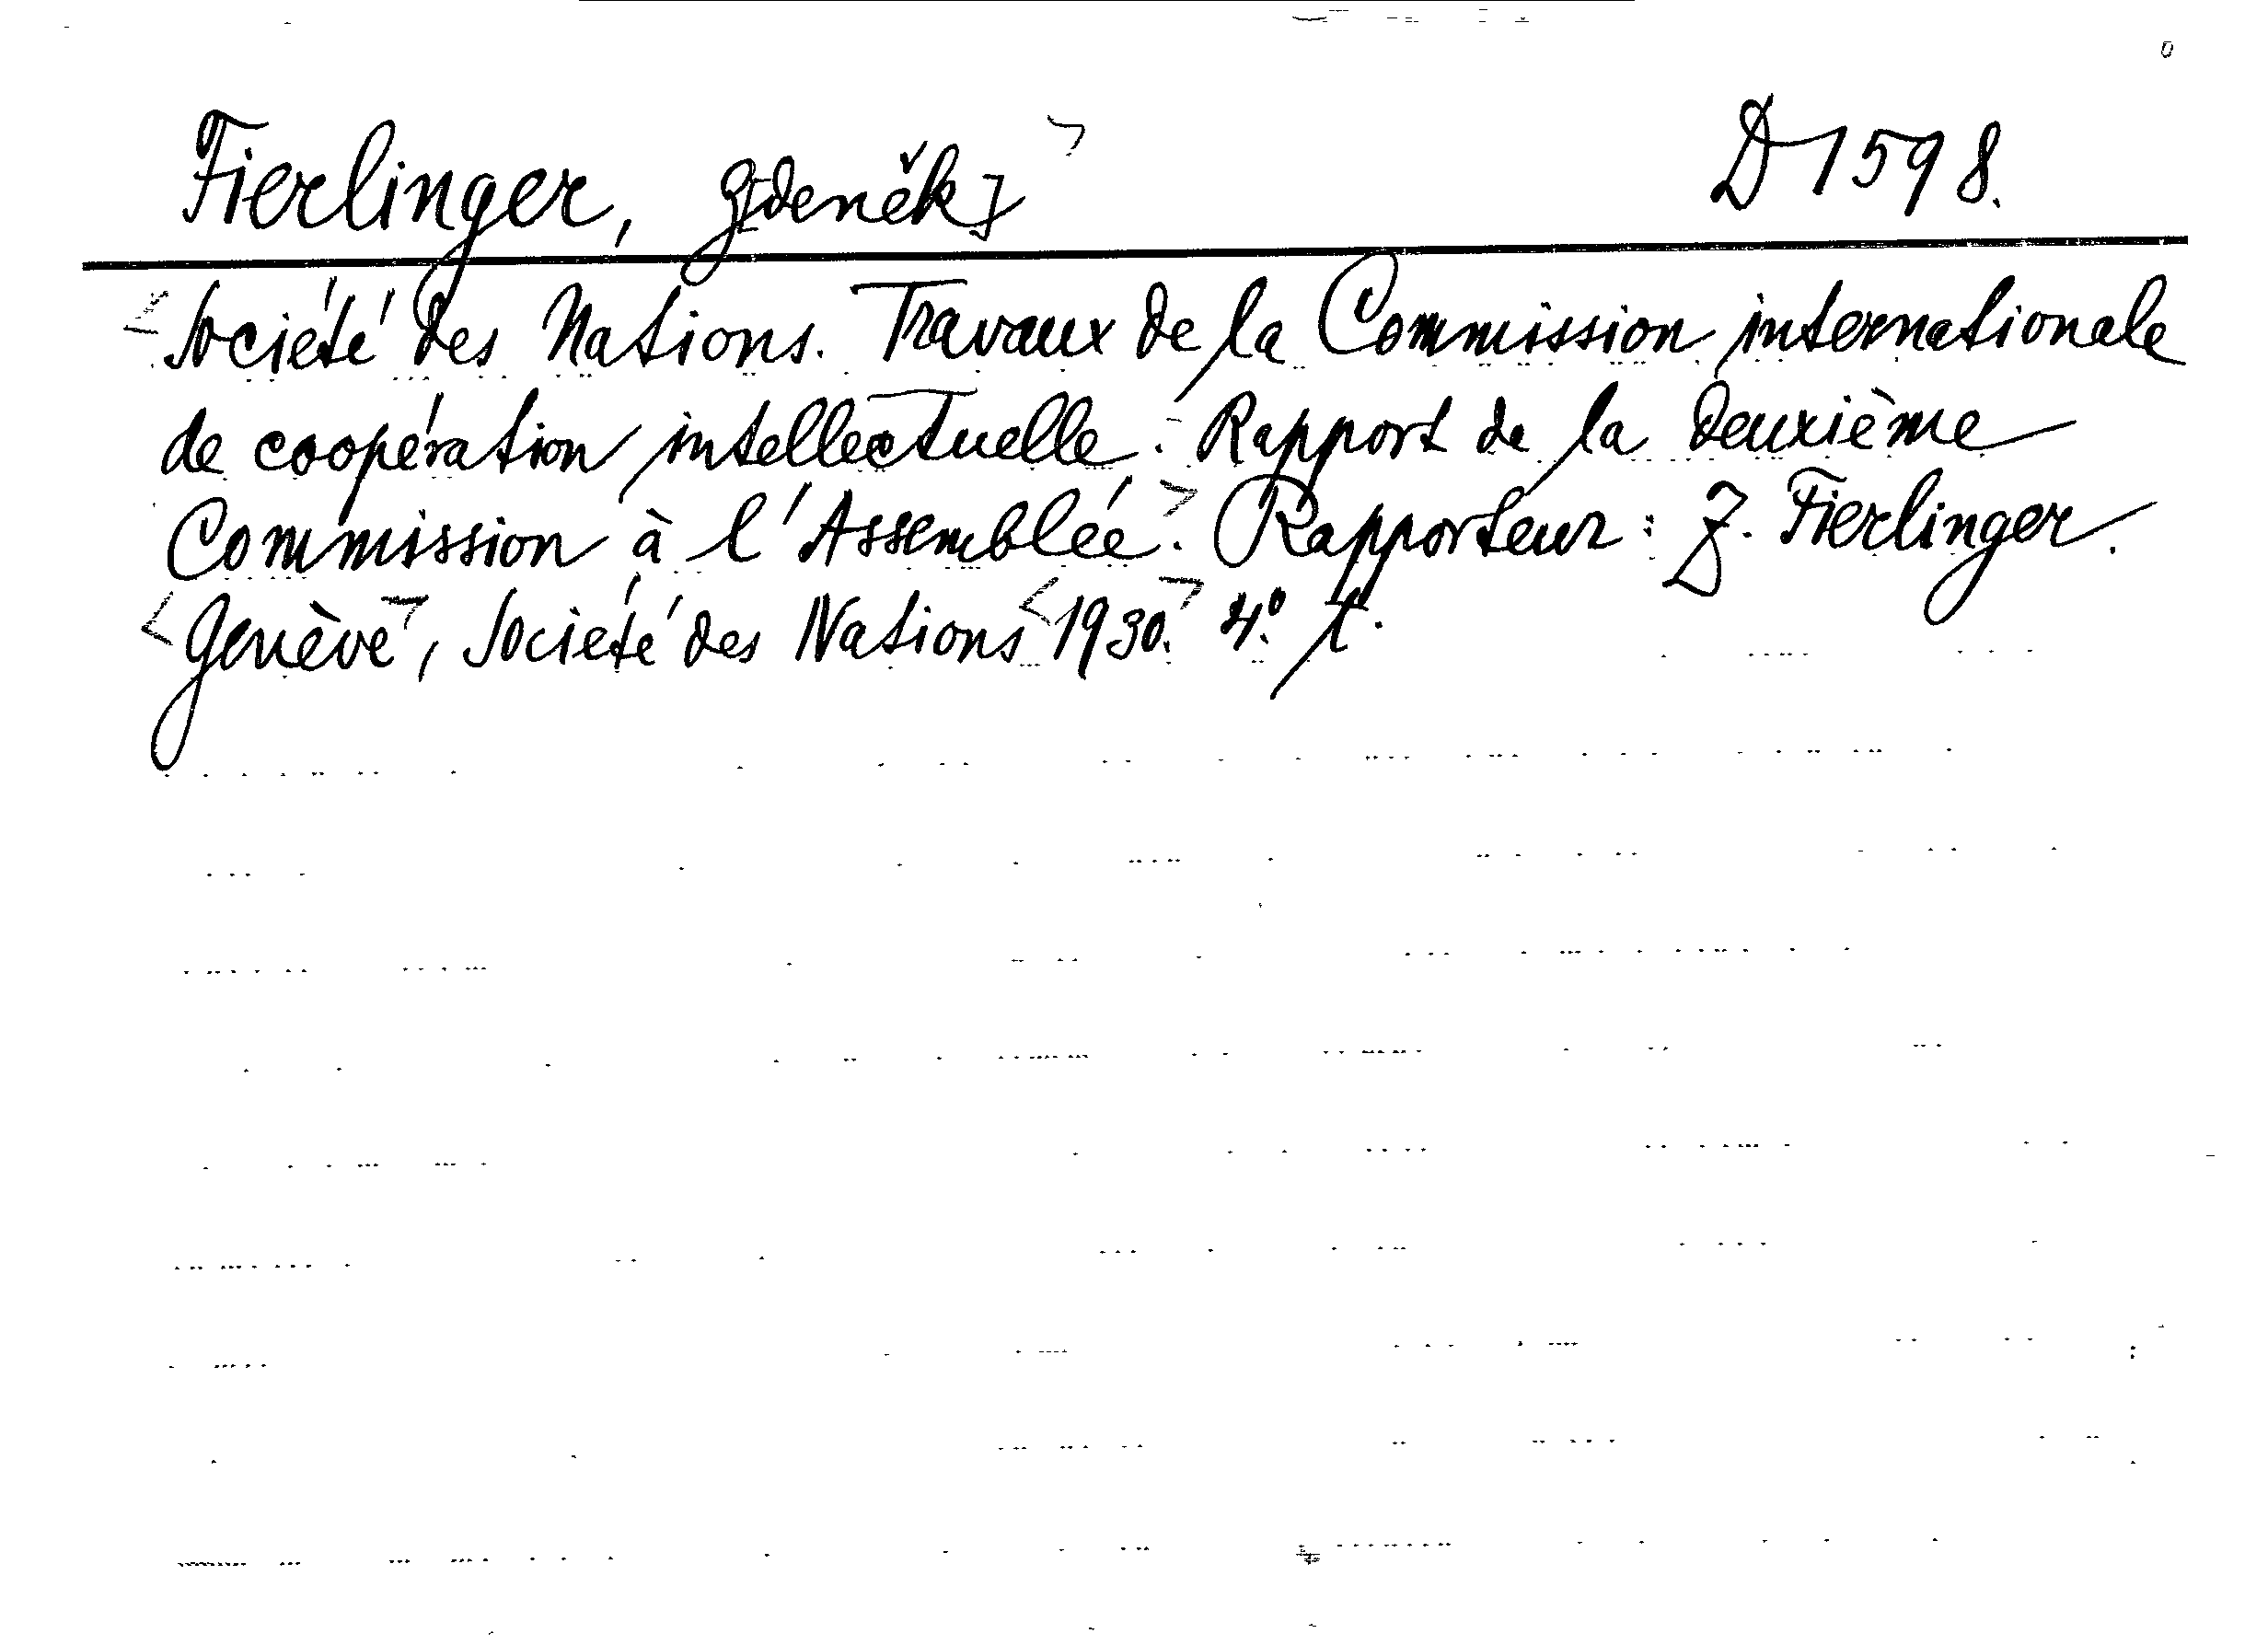 Fierlinger, Z[deněk] D 1598.
Société des Nations. Travaux de la Commission internationale
de coopération intellectuelle. Rapport de la deuxième
Commission à l'Assemblée. Rapporteur: Z. Fierlinger.
Genève, Société des Nations 1930. 4°.